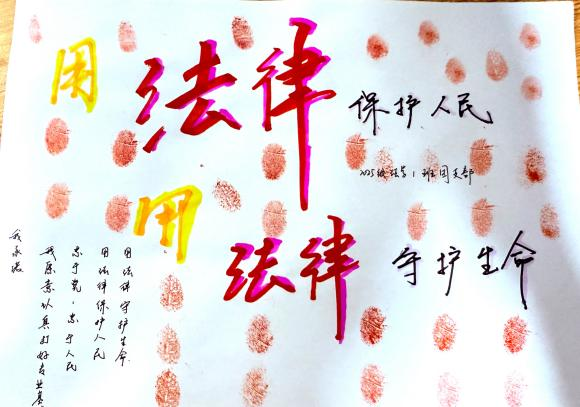 用法律保护人民
2025级法学1班团支部
用法律守护生命
用法律守护生命
用法律保护人民
忠于党，忠于人民
我愿意认真打好专业基
我承诺